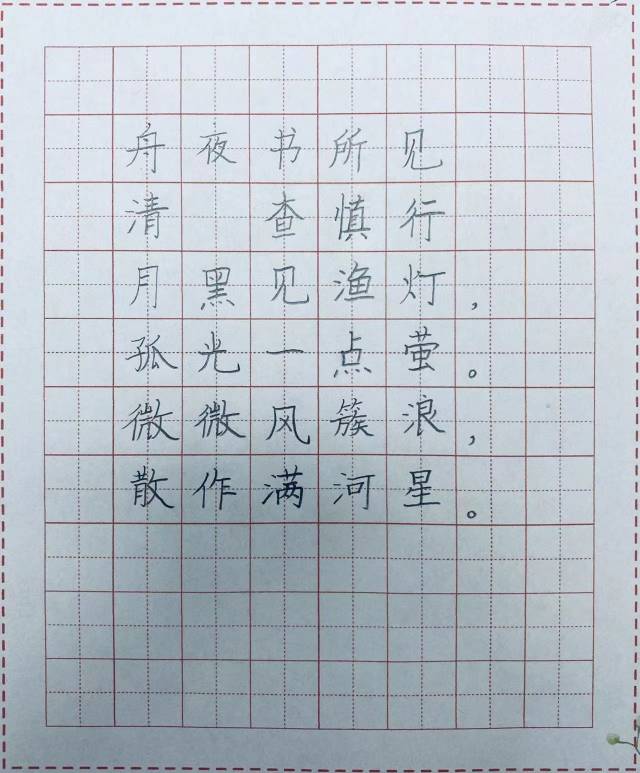 舟夜书所见
清 查慎行
月黑见渔灯，
孤光一点萤。
微微风簇浪，
散作满河星。